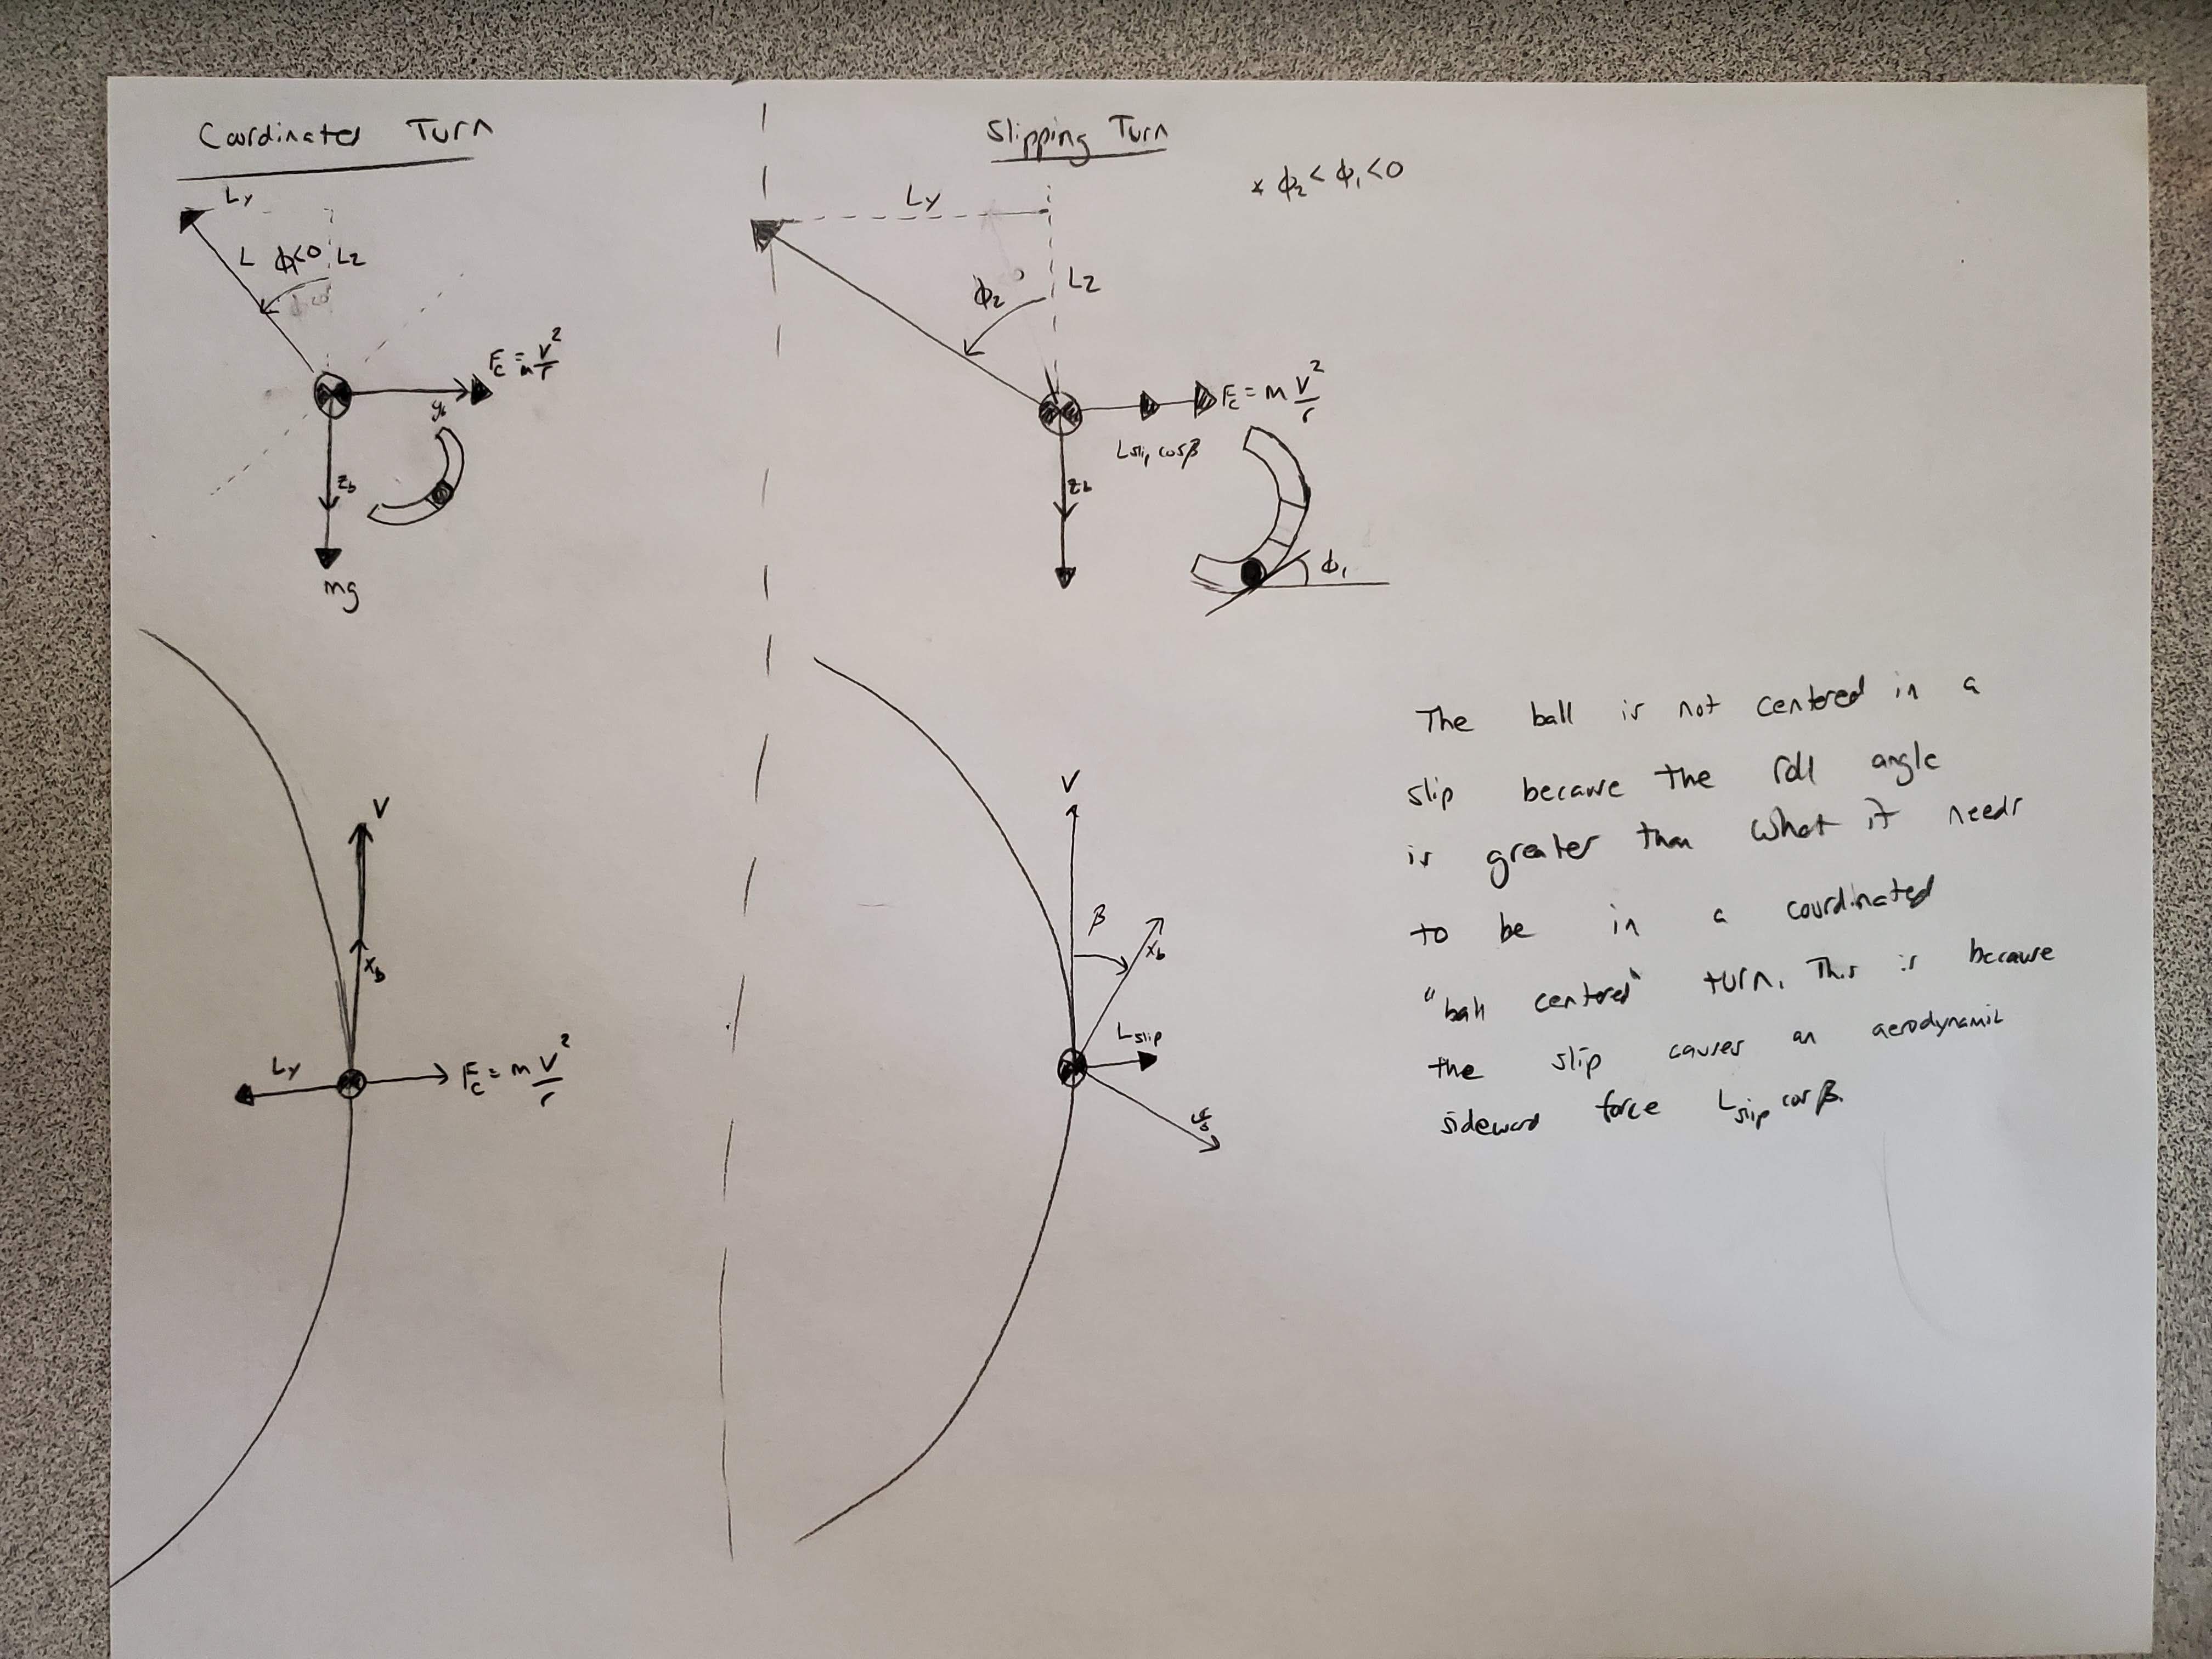 Coordinated Turn
Ly
L ϕ<0 Lz
ϕ<0
Fc = m V²/r
yb
zb
mg
V
xb
Ly
Fc = m V²/r
Slipping Turn
* ϕ₂ < ϕ₁ < 0
Ly
ϕ₂
Lz
Fc = m V²/r
Lslip cosβ
zb
ϕ₁
V
β
xb
Lslip
The ball is not centered in a
slip because the roll angle
is greater than what it needs
to be in a coordinated
"ball centered" turn. This is because
the slip causes an aerodynamic
sideward force Lslip cosβ.